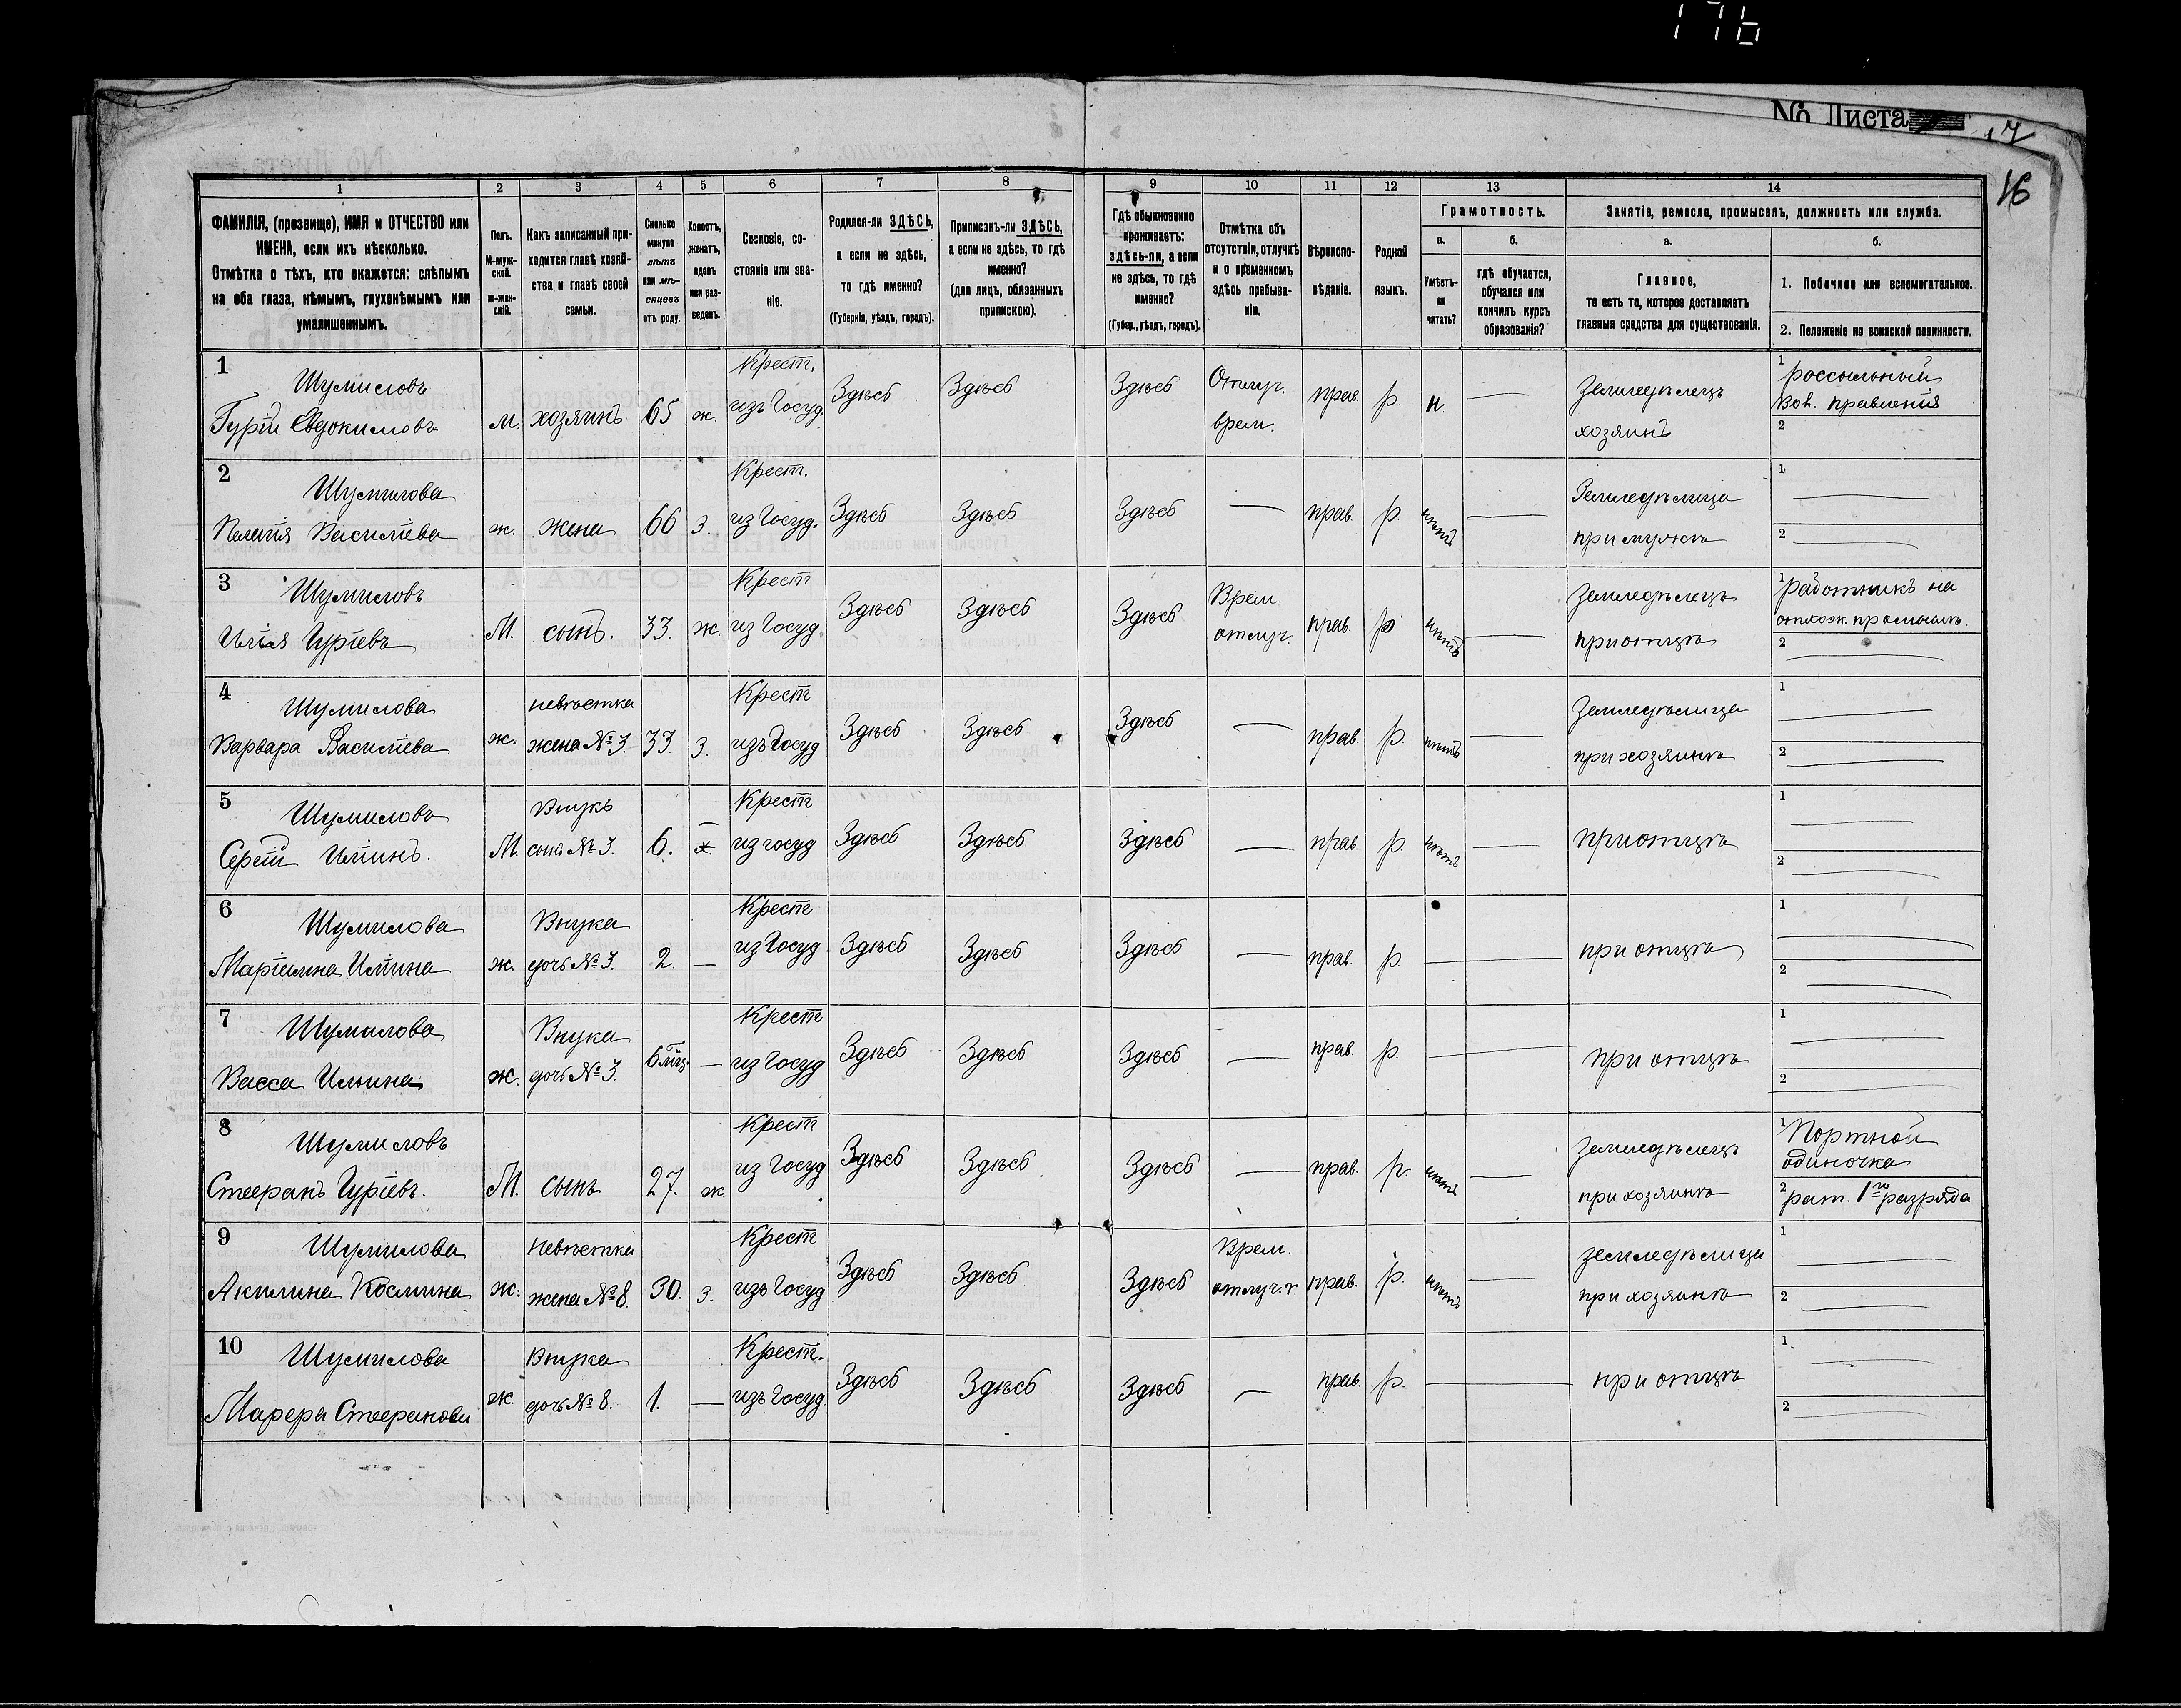 176
№ Листа 17
16
1 2 3 4 5 6 7 8 9 10 11 12 13 14
ФАМИЛІЯ, (прозвище), ИМЯ и ОТЧЕСТВО или
ИМЕНА, если ихъ нѣсколько.
Отмѣтка о тѣхъ, кто окажется: слѣпымъ
на оба глаза, нѣмымъ, глухонѣмымъ или
умалишеннымъ.
Полъ.
М-муж-
ской.
ж-жен-
скій.
Какъ записанный при-
ходится главѣ хозяй-
ства и главѣ своей
семьи.
Сколько
минуло
лѣтъ
или мѣ-
сяцевъ
отъ роду.
Холостъ,
женатъ,
вдовъ
или раз-
веденъ.
Сословіе, со-
стояніе или зва-
ніе.
Родился-ли ЗДѢСЬ,
а если не здѣсь,
то гдѣ именно?
(Губернія, уѣздъ, городъ).
Приписанъ-ли ЗДѢСЬ,
а если не здѣсь, то гдѣ
именно?
(для лицъ, обязанныхъ
припискою).
Гдѣ обыкновенно
проживаетъ:
здѣсь-ли, а если
не здѣсь, то гдѣ
именно?
(Губер., уѣздъ, городъ).
Отмѣтка объ
отсутствіи, отлучкѣ
и о временномъ
здѣсь пребыва-
ніи.
Вѣроиспо-
вѣданіе.
Родной
языкъ.
Грамотность.
а.
Умѣетъ-
ли
читать?
б.
гдѣ обучается,
обучался или
кончилъ курсъ
образованія?
Занятіе, ремесло, промыселъ, должность или служба.
а.
Главное,
то есть то, которое доставляетъ
главныя средства для существованія.
б.
1. Побочное или вспомогательное.
2. Положеніе по воинской повинности.
1 Крест. 1 россыльный
Шумиловъ Здѣсь Здѣсь Здѣсь Отлуч. Земледѣлецъ Вол. правленія
Гурій Евдокимовъ м. хозяинъ 65 ж. изъ Госуд. врем. прав р. н. — хозяинъ 2
2 Крест. 1 —
Шумилова Земледѣлица
Пелагія Василіева ж. жена 66 з. из Госуд. Здѣсь Здѣсь Здѣсь — прав. р. нѣтъ — при мужѣ 2 —
3 Крест 1 Работникъ на
Шумиловъ Здѣсь Здѣсь Здѣсь Врем. Земледѣлецъ отхож. промыслъ
Илія Гуріевъ М. сынъ. 33. ж. из Госуд отлуч. прав. р нѣтъ — при отцѣ 2 —
4 невѣстка Крест 1 —
Шумилова Земледѣлица
Варвара Василіева ж. жена № 3 33. з. изъ Госуд Здѣсь Здѣсь Здѣсь — прав. р. нѣтъ — при хозяинѣ 2 —
5 Внукъ Крест 1 —
Шумиловъ
Сергій Иліинъ. М. сынъ № 3. 6. ж. из госуд Здѣсь Здѣсь Здѣсь — прав. р. нѣтъ — при отцѣ 2 —
6 Внука Крест 1 —
Шумилова
Маріамна Иліина ж. дочь № 3. 2. — из Госуд Здѣсь Здѣсь Здѣсь — прав. р. — при отцѣ 2 —
7 Внука Крест 1 —
Шумилова
Васса Ильина ж. дочь № 3. 6 мц. — из Госуд Здѣсь Здѣсь Здѣсь — прав. р. — при отцѣ 2 —
8 Крест 1 Портной
Шумиловъ Земледѣлецъ одиночка
Стефанъ Гуріевъ. М. сынъ 27. ж. из Госуд Здѣсь Здѣсь Здѣсь — прав. р. нѣтъ — при хозяинѣ 2 рат. 1го разряда
9 Невѣстка Крест Врем. 1 —
Шумилова земледѣлица
Акилина Космина ж. жена № 8. 30. з. изъ Госуд Здѣсь Здѣсь Здѣсь отлуч. прав. р. нѣтъ — при хозяинѣ 2 —
10 Внука Крест. 1 —
Шумилова
Марфа Стефанова ж. дочь № 8. 1. — изъ Госуд. Здѣсь Здѣсь Здѣсь — прав. р. — при отцѣ 2 —